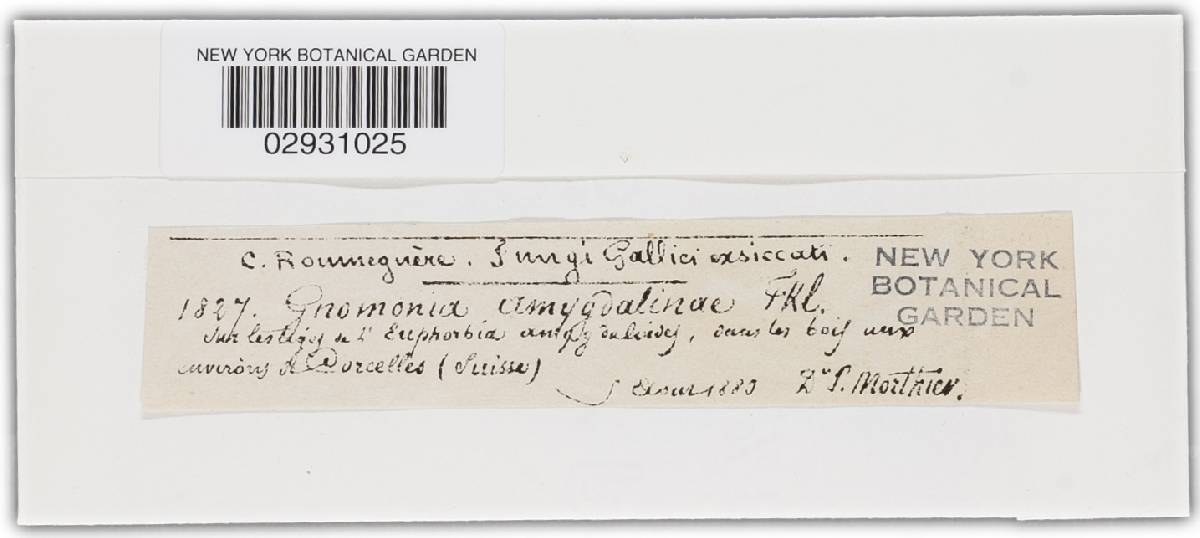 NEW YORK BOTANICAL GARDEN
02931025
C. Roumeguère. Fungi Gallici exsiccati.
NEW YORK
BOTANICAL
GARDEN
1827. Gnomonia amygdalinae Fkl.
Sur les tiges de l'Euphorbia amygdaloides, dans les bois aux
environs de Corcelles (Suisse)
Aout 1880 Dr P. Morthier.